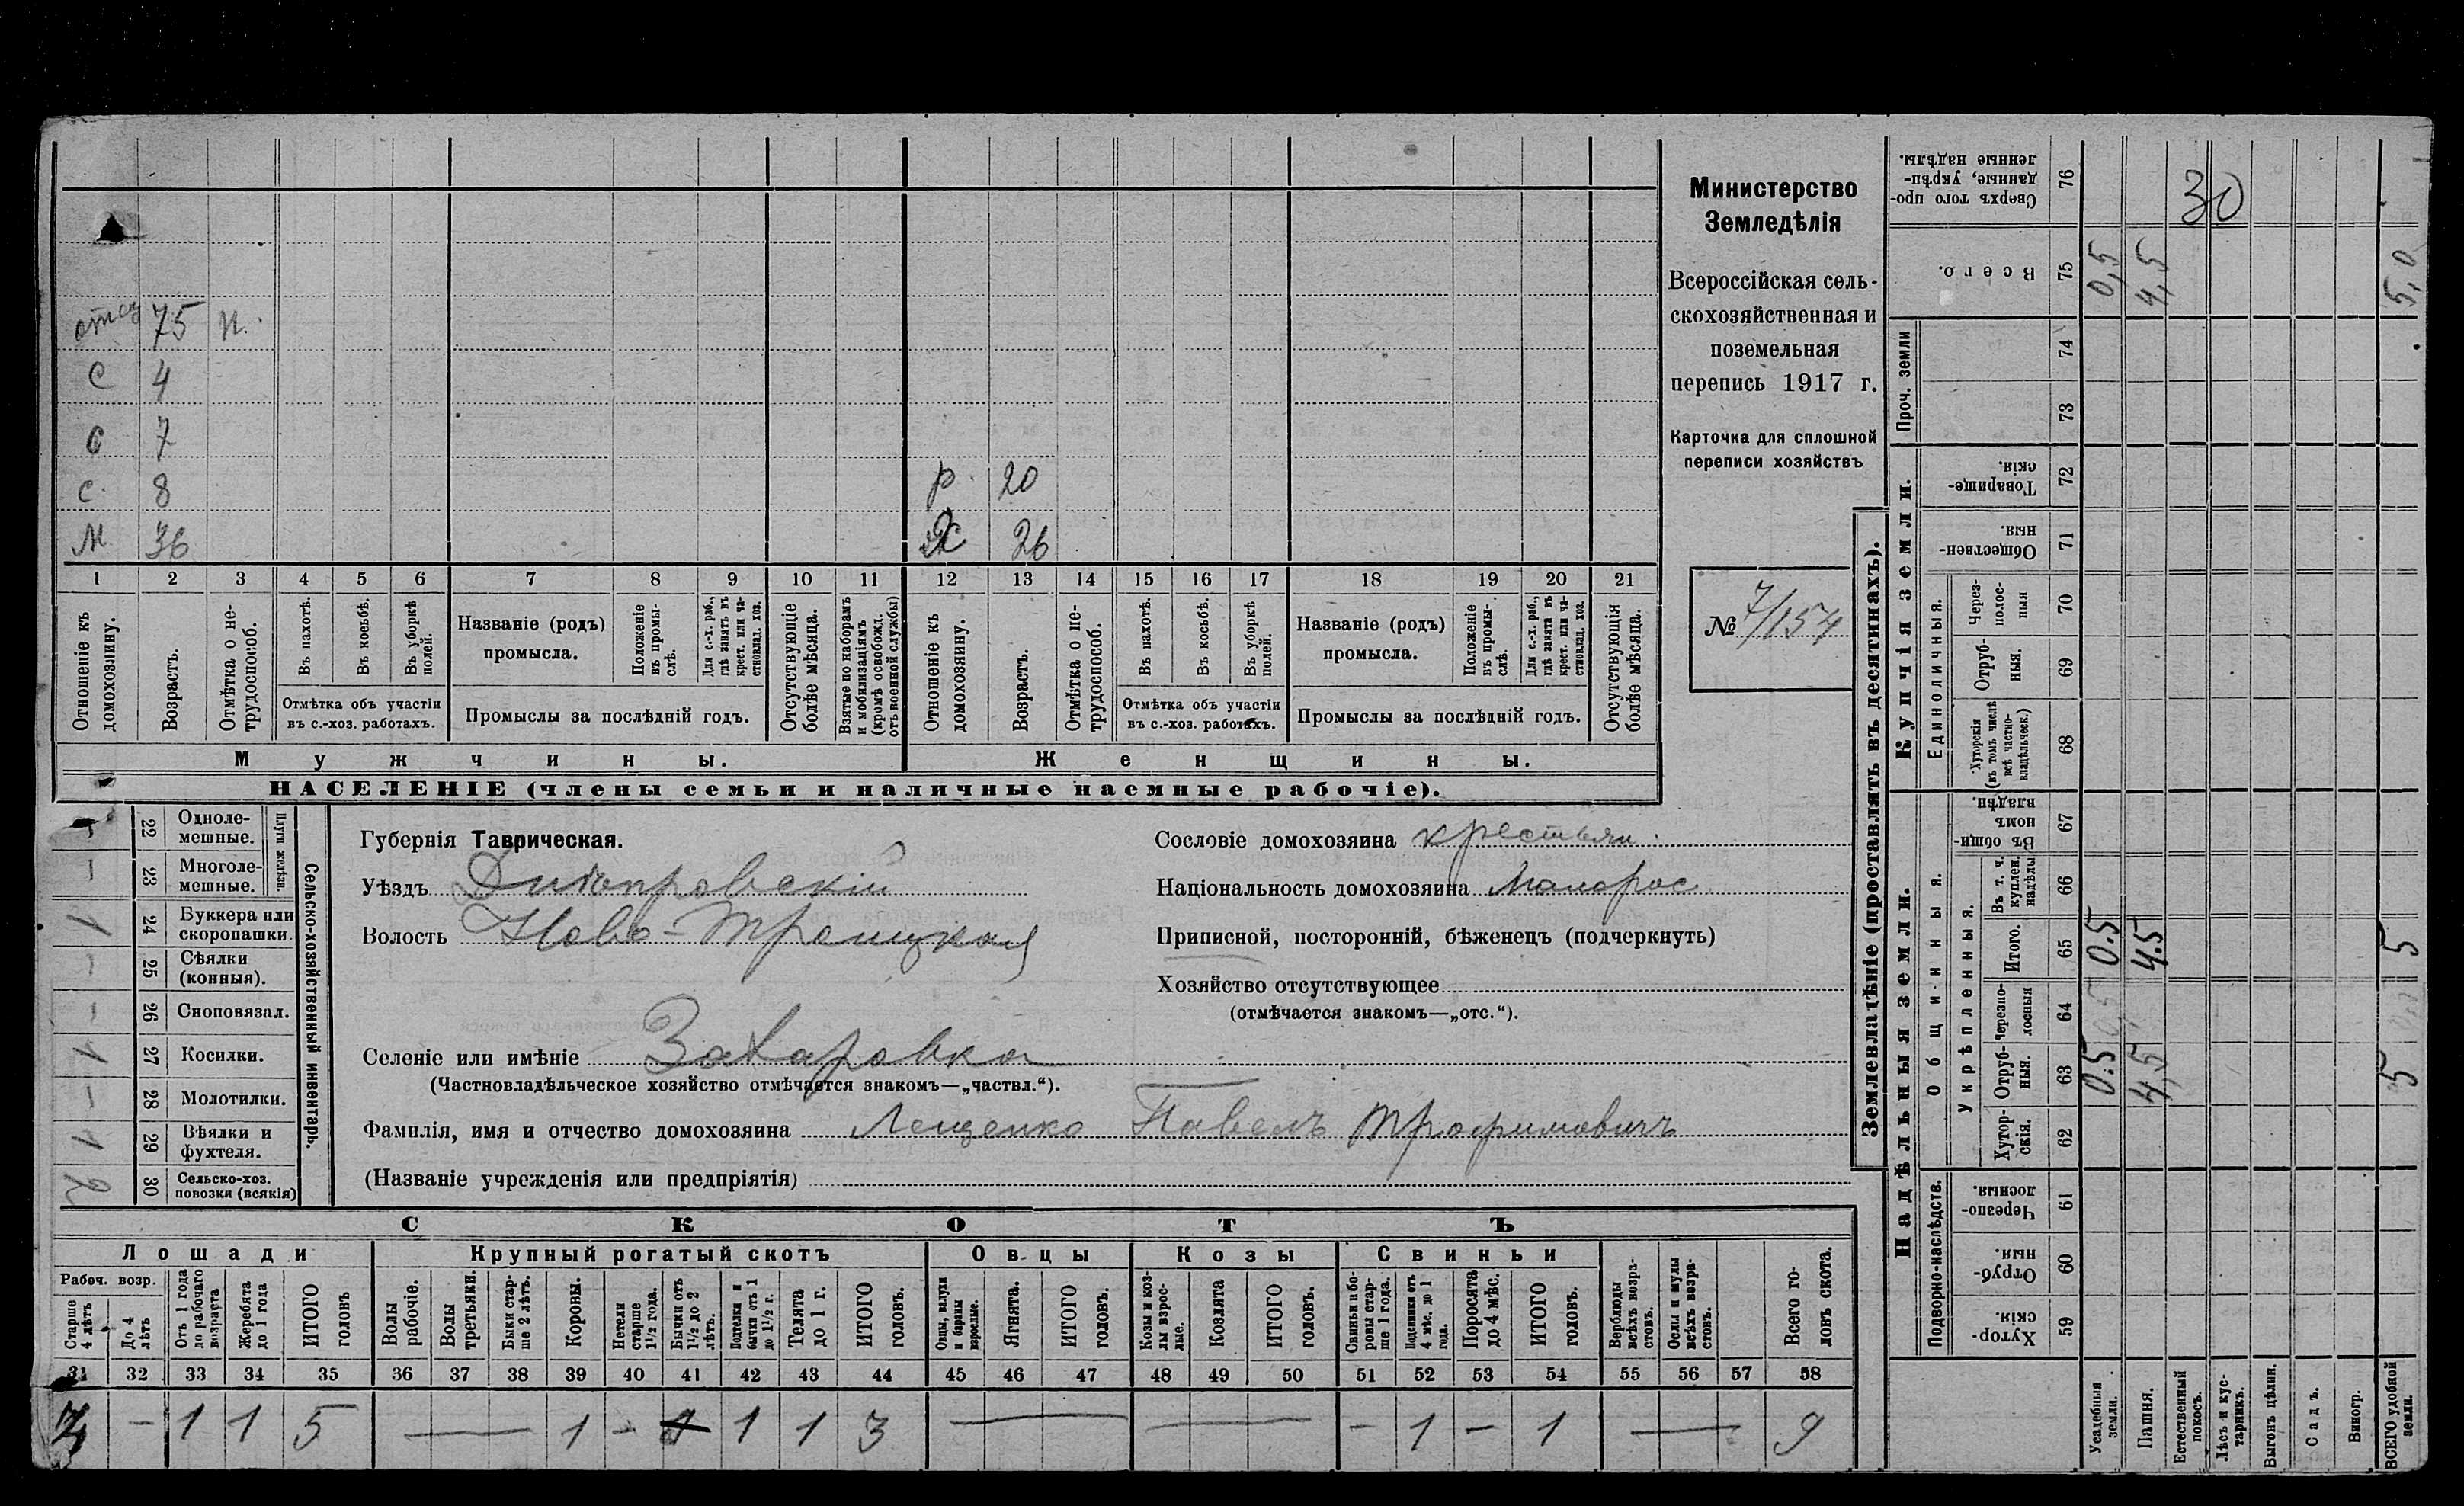 отец 75 н.
с 4
с 7
с. 8
м 36
р. 20
ж 26
1 2 3 4 5 6 7 8 9 10 11 12 13 14 15 16 17 18 19 20 21
Отношеніе къ домохозяину.
Возрастъ.
Отмѣтка о не-трудоспособ.
Въ пахотѣ.
Въ косьбѣ.
Въ уборкѣ полей.
Отмѣтка объ участіи
въ с.-хоз. работахъ.
Названіе (родъ)
промысла.
Положеніе въ промы-слѣ.
Для с.-х. раб., гдѣ занятъ въ крест. или ча-стновлад. хоз.
Промыслы за послѣдній годъ.
Отсутствующіе болѣе мѣсяца.
Взятые по наборамъ и мобилизаціямъ (кромѣ освобожд. отъ военной службы)
Отношеніе къ домохозяину.
Возрастъ.
Отмѣтка о не-трудоспособ.
Въ пахотѣ.
Въ косьбѣ.
Въ уборкѣ полей.
Отмѣтка объ участіи
въ с.-хоз. работахъ.
Названіе (родъ)
промысла.
Положеніе въ промы-слѣ.
Для с.-х. раб., гдѣ занята въ крест. или ча-стновлад. хоз.
Промыслы за послѣдній годъ.
Отсутствующія болѣе мѣсяца.
Мужчины.
Женщины.
НАСЕЛЕНІЕ (члены семьи и наличные наемные рабочіе).
Министерство
Земледѣлія
Всероссійская сель-
скохозяйственная и
поземельная
перепись 1917 г.
Карточка для сплошной
переписи хозяйствъ
№ 7/154
Сельско-хозяйственный инвентарь.
Плуги желѣзн.
– 22 Однолемешные.
– 23 Многолемешные.
1 24 Буккера или скоропашки.
– 25 Сѣялки (конныя).
– 26 Сноповязал.
1 27 Косилки.
– 28 Молотилки.
1 29 Вѣялки и фухтеля.
2 30 Сельско-хоз. повозки (всякія)
Губернія Таврическая.
Уѣздъ Днѣпровскій
Волость Ново-Троицкая
Селеніе или имѣніе Захаровка
(Частновладѣльческое хозяйство отмѣчается знакомъ—„частвл.“).
Фамилія, имя и отчество домохозяина Лещенко Павелъ Трофимовичъ
(Названіе учрежденія или предпріятія)
Сословіе домохозяина крестьян.
Національность домохозяина Малорос
Приписной, посторонній, бѣженецъ (подчеркнуть)
Хозяйство отсутствующее
(отмѣчается знакомъ—„отс.“).
СКОТЪ
Лошади Крупный рогатый скотъ Овцы Козы Свиньи
Рабоч. возр.
Старше 4 лѣтъ
До 4 лѣтъ
Отъ 1 года до рабочаго возраста
Жеребята до 1 года
ИТОГО головъ
Волы рабочіе.
Волы третьяки.
Быки стар-ше 2 лѣтъ.
Коровы.
Нетели старше 1½ года.
Бычки отъ 1½ до 2 лѣтъ.
Подтелки и бычки отъ 1 до 1½ г.
Телята до 1 г.
ИТОГО головъ.
Овцы, валухи и бараны взрослые.
Ягнята.
ИТОГО головъ.
Козы и коз-лы взрос-лые.
Козлята
ИТОГО головъ.
Свиньи и бо-ровы стар-ше 1 года.
Подсвинки отъ 4 мѣс. до 1 года.
Поросята до 4 мѣс.
ИТОГО головъ.
Верблюды всѣхъ возра-стовъ.
Ослы и мулы всѣхъ возра-стовъ.
Всего го-ловъ скота.
31 32 33 34 35 36 37 38 39 40 41 42 43 44 45 46 47 48 49 50 51 52 53 54 55 56 57 58
– 1 1 5 — 1 – 1 1 3 — — – 1 – 1 — 9
Землевладѣніе (проставлять въ десятинахъ).
Надѣльныя земли.
Купчія земли.
Проч. земли
Подворно-наслѣдств.
Общинныя.
Укрѣпленныя.
Единоличныя.
Сверхъ того про-данные, укрѣп-ленные надѣлы. 76 30
Всего. 75 0,5 4,5 5,0
74
73
Товарище-скія. 72
Обществен-ныя. 71
Через-полос-ныя 70
Отруб-ныя. 69
Хуторскія (въ томъ числѣ всѣ частно-владѣльческ.) 68
Въ общин-номъ владѣн. 67
Въ т. ч. куплен. надѣлы 66
Итого. 65 0.5 4.5 5
Черезпо-лосныя 64
Отруб-ныя. 63 0.5 4,5 5
Хутор-скія. 62
Черезпо-лосныя. 61
Отруб-ныя. 60
Хутор-скія. 59
Усадебныя земли.
Пашня.
Естественный покосъ.
Лѣсъ и кус-тарникъ.
Выгонъ цѣлин.
Садъ.
Виногр.
ВСЕГО удобной земли.